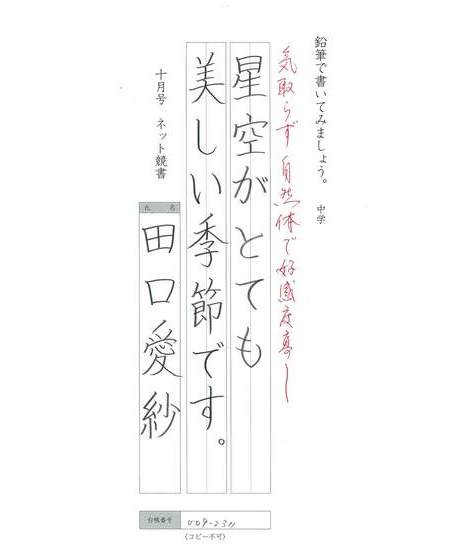 鉛筆で書いてみましょう。 中学
気取らず自然体で好感度高し
星空がとても
美しい季節です。
十月号 ネット競書
氏名
田口愛紗
台帳番号 009-2311
〈コピー不可〉